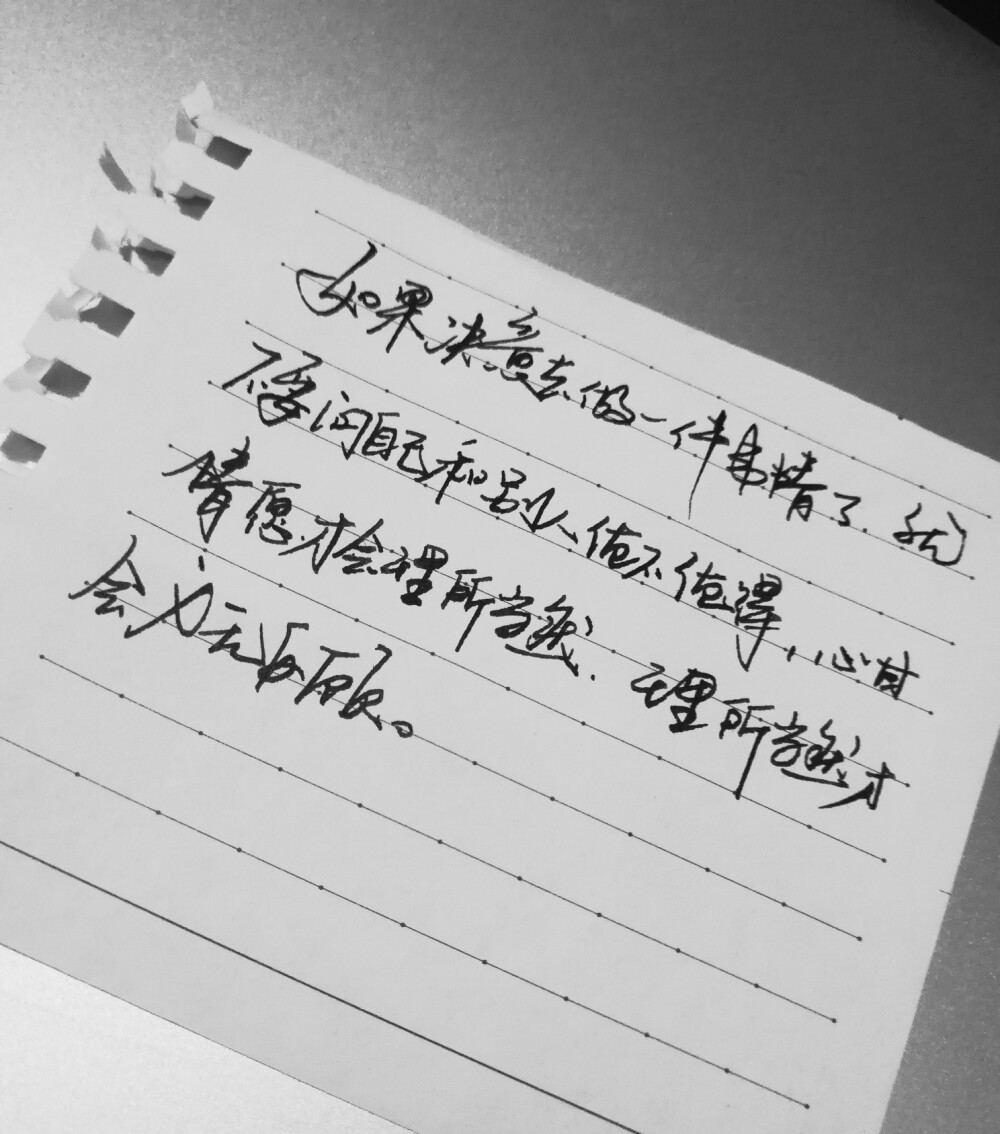 如果决意去做一件事情了，就
不要问自己和别人值不值得，心甘
情愿才会理所当然，理所当然才
会义无反顾。